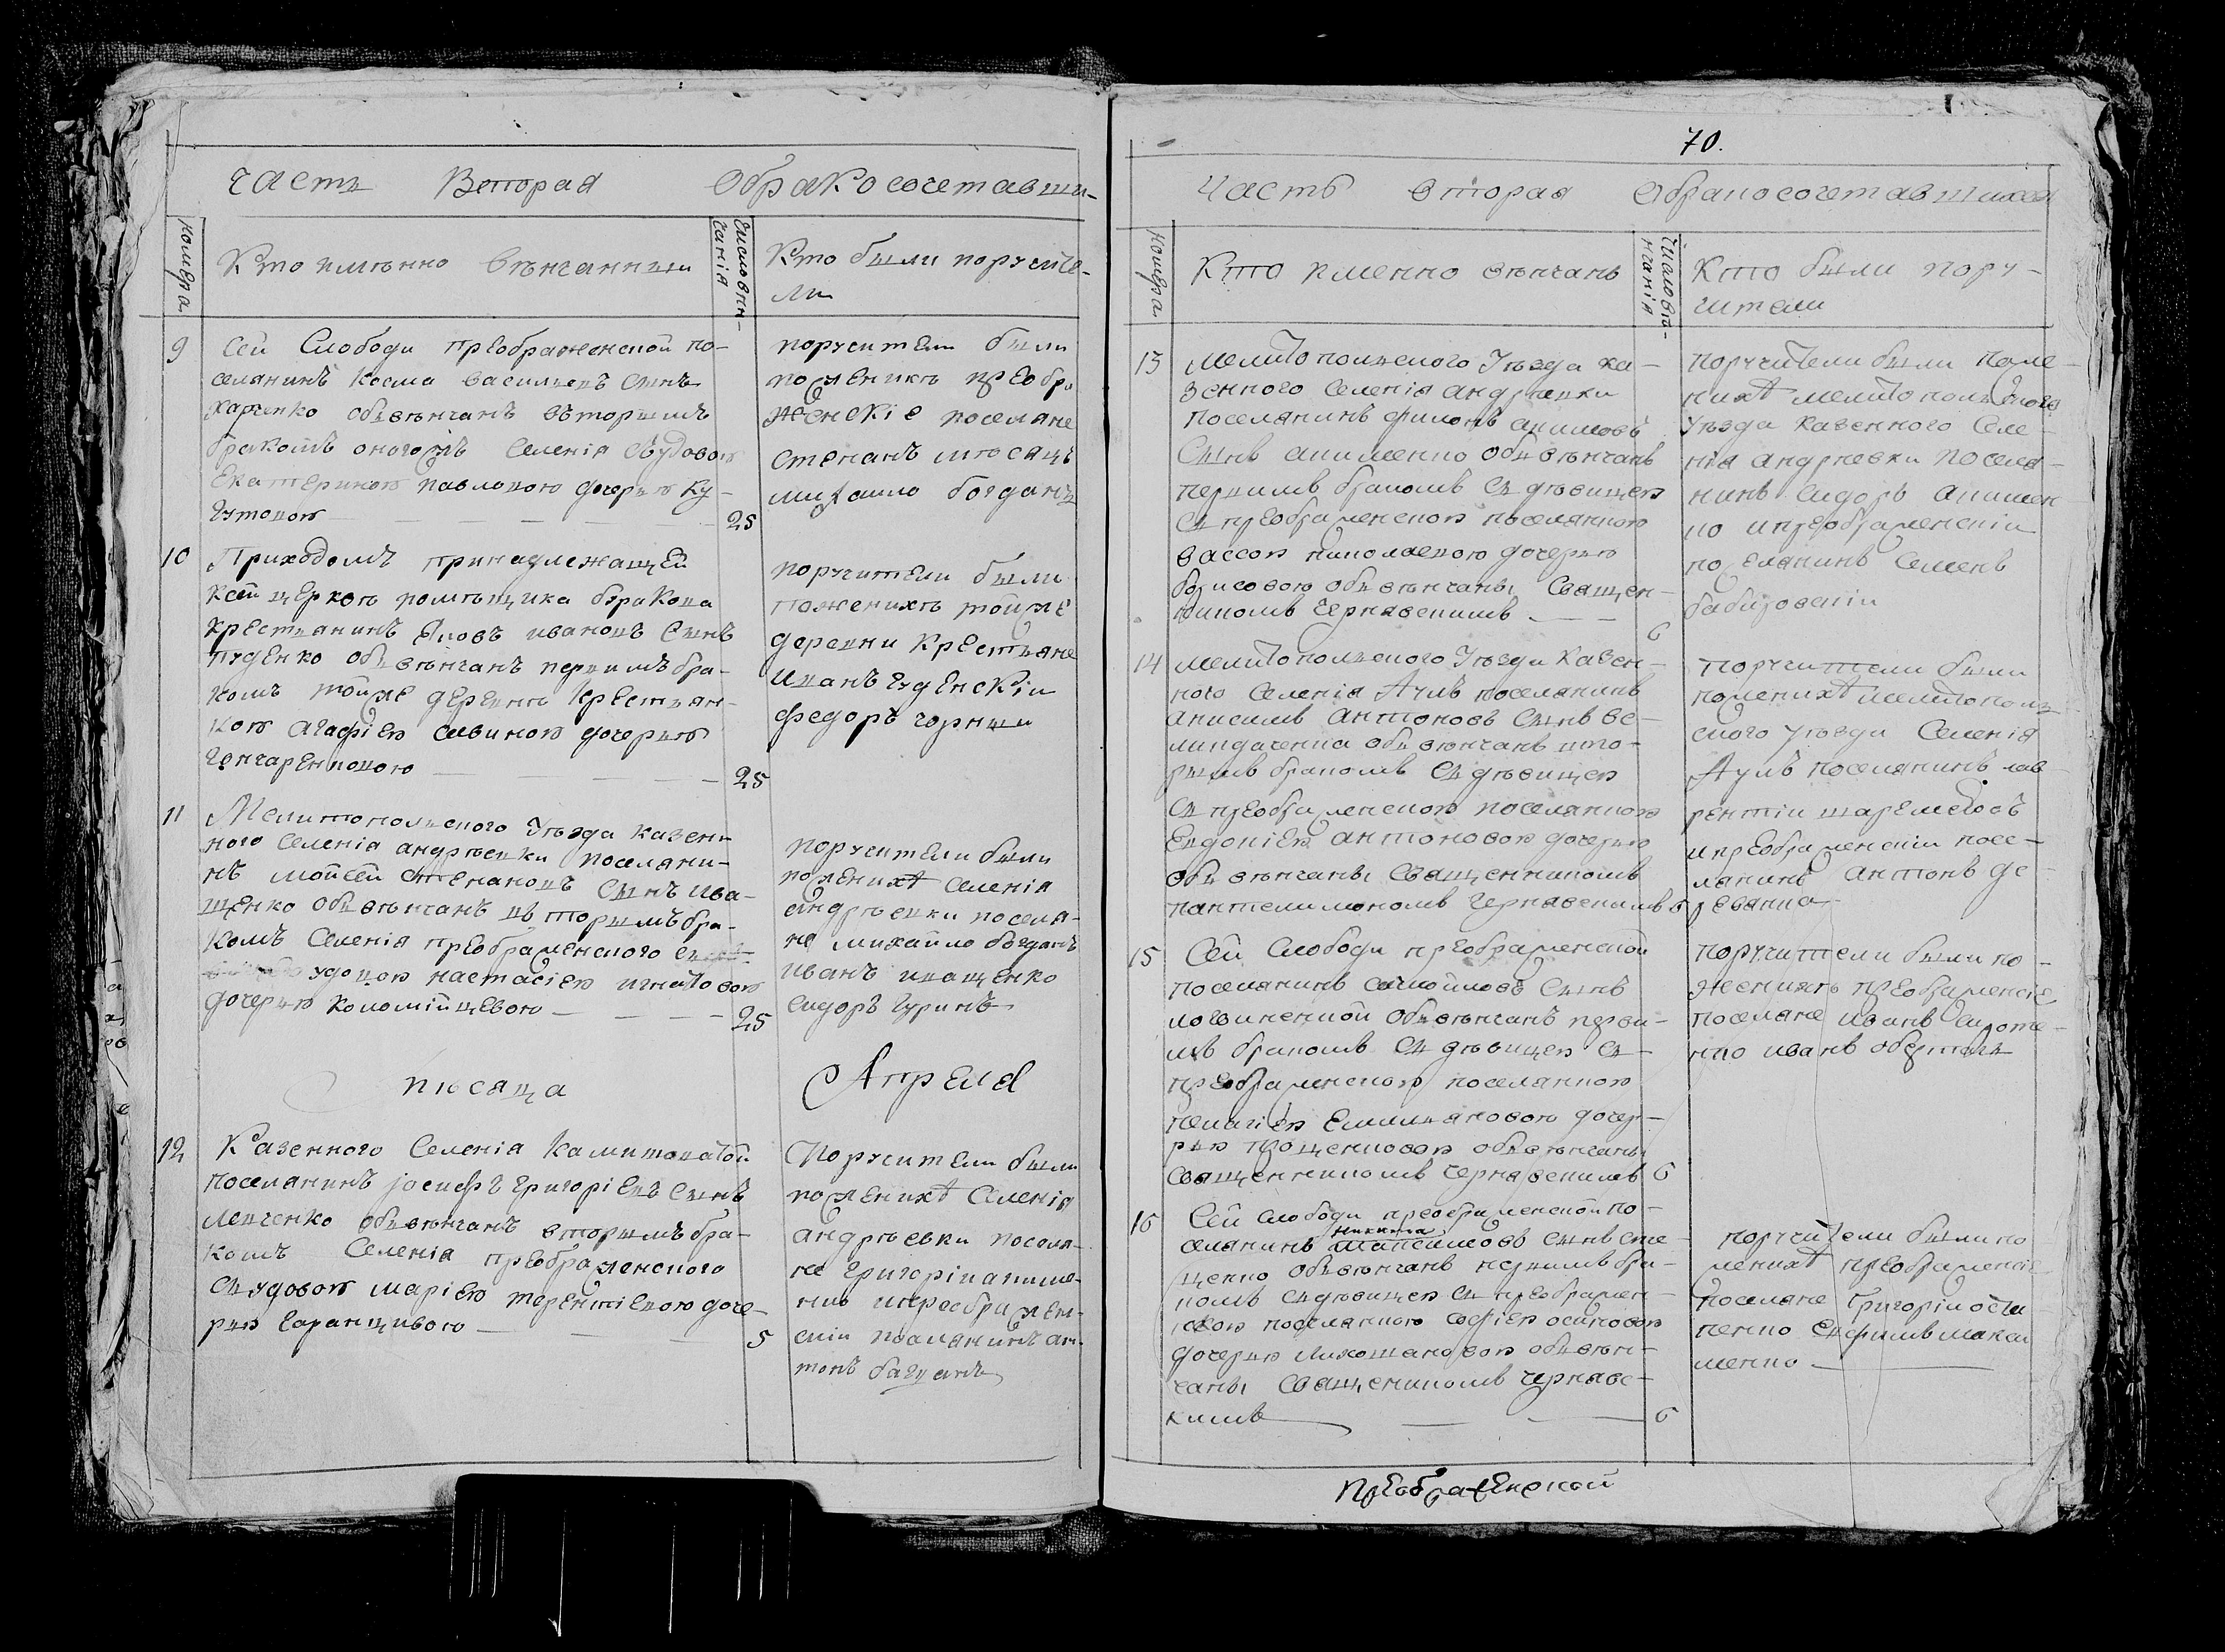 70.
Часть Вторая Обракосочетавши-
Номера
Кто имѣнно вѣнчанныи
Число вѣн-
чанія
Кто были поручите-
ли
9
Сей Слободи преображенской по-
селянинъ Косма васильевъ сынъ
харченко обвѣнчанъ вторымъ
бракомъ оногожъ селенія свудовою
Екатериною павловою дочерью Ку-
чутовою
25
поручители были
поженихѣ преобра
женскіе поселяне
степанъ
михайло богданъ
10
Приходомъ принадлежащей
Ксей церквѣ помѣщика
крестьянинъ яковъ ивановъ сынъ
обвѣнчанъ первимъ бра-
комъ тойже деревнѣ крестьян-
кою агафіею савиною дочерью
гончаренковою
25
поручители были
поженихѣ тойже
деревни крестьяне
иванъ гуденскій
федоръ чорныи
11
Мелитопольского уѣзда казен-
ного селенія андрѣевки поселяни-
нъ мойсей степановъ сынъ ива-
щенко обвѣнчанъ вторымъ бра-
комъ селенія преображенского
удовою настасіею игнатовою
дочерью коломійцевою
25
поручители были
поженихѣ селенія
андрѣевки поселя-
не михайло богданъ
иванъ иващенко
сидоръ гуринъ
мѣсяца Апреля
12
Казенного селенія Камитоватой
поселянинъ іосифъ григоріевъ сынъ
левченко обвѣнчанъ вторымъ бра-
комъ селенія преображенского
съудовою маріею терентіевою доче-
рью
5
Поручители были
поженихѣ селенія
андрѣевки поселя-
не григорій акиме-
нко ипреображен-
скій поселянинъ ан-
тонъ
Часть вторая обракосочетавшихся
Номера
Кто именно вѣнчанъ
Число вѣ-
нчанія
Кто были пору-
чители
13
Мелитопольского уѣзда ка-
зенного селенія андрѣевки
поселянинъ филонъ акимовъ
сынъ акименко обвѣнчанъ
первимъ бракомъ съ дѣвицею
съ преображенскою поселянкою
вассою николаевою дочерью
борисовою обвѣнчаны священ-
никомъ чернявскимъ
6
Поручители были поже-
нихѣ мелитопольского
уѣзда казенного селе-
нія андреевки поселя-
нинъ сидоръ акимен
ко ипреображенскій
поселянинъ семенъ
14
мелитопольского уѣзда казен-
ного селенія поселянинъ
анисимъ антоновъ сынъ ве-
обвѣнчанъ вто-
рымъ бракомъ съ дѣвицею
съ преображенскою поселянкою
Евдокіею антоновою дочерью
обвѣнчаны священникомъ
пантелимономъ чернявскимъ
6
поручители были
поженихѣ мелитополь
ского уѣзда селенія
поселянинъ лав
рентій шереметовъ
ипреображенскій посе-
лянинъ антонъ де-
ревянко
15
Сей слободи преображенской
поселянинъ самойловъ сынъ
обвѣнчанъ перви-
мъ бракомъ съ дѣвицею съ
преображенскою поселянкою
пелагіею Емильяновою доче-
рью троценковою обвѣнчаны
священникомъ чернявскимъ
6
поручители были по-
женихѣ преображенскіе
поселяне иванъ сироте-
нко иванъ
16
Сей слободи преображенской по-
селянинъ никита максимовъ сынъ
обвѣнчанъ первимъ бра-
комъ съдѣвицею съ преображен-
скою поселянкою софіею осиповою
дочерью обвѣн-
чаны священникомъ черняв-
кимъ
6
поручители были по
женихѣ преображенскіе
поселяне григорій оста
пенко Ефимъ макси
менко
Преображенской